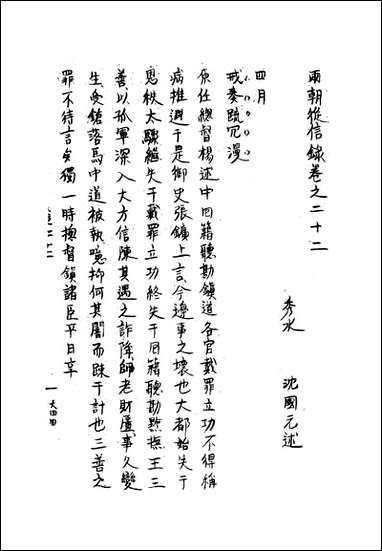 兩朝從信錄卷之二十二
秀水　沈國元述
四月
戒奏疏冗漫
原任總督楊述中回籍聽勘鎮道各官戴罪立功不得稱
病推避于是御史張鑛上言今邊事之壞也大都始失于
恩秩太驟繼失于戴罪立功終失于回籍聽勘黔撫王三
善以孤軍深入大方信陳其遇之詐降師老財匱事久變
生受鎗落馬中道被執噫抑何其闇而疎于計也三善之
罪不待言矣獨一時撫督鎮諸臣平日享